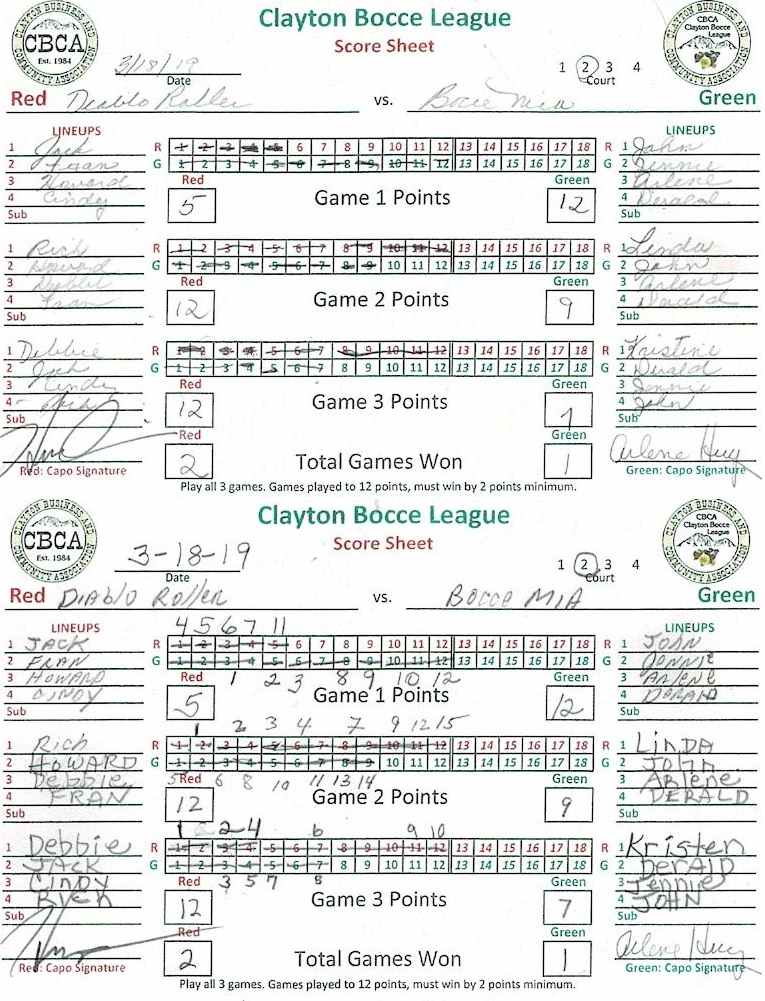 CLAYTON BUSINESS AND COMMUNITY ASSOCIATION
CBCA
Est. 1984
Clayton Bocce League
Score Sheet
CBCA
Clayton Bocce
League
3/18/19
Date
1 2 3 4
Court
Red Diablo Roller vs. Bocce Mia Green
LINEUPS
LINEUPS
1 Jack R 1 2 3 4 5 6 7 8 9 10 11 12 13 14 15 16 17 18 R 1 John
2 Fran G 1 2 3 4 5 6 7 8 9 10 11 12 13 14 15 16 17 18 G 2 Jennie
3 Howard Red Green 3 Arlene
4 Cindy 5 Game 1 Points 12 4 Derald
Sub Sub
1 Rich R 1 2 3 4 5 6 7 8 9 10 11 12 13 14 15 16 17 18 R 1 Linda
2 Howard G 1 2 3 4 5 6 7 8 9 10 11 12 13 14 15 16 17 18 G 2 John
3 Debbie Red Green 3 Arlene
4 Fran 12 Game 2 Points 9 4 Derald
Sub Sub
1 Debbie R 1 2 3 4 5 6 7 8 9 10 11 12 13 14 15 16 17 18 R 1 Kristine
2 Jack G 1 2 3 4 5 6 7 8 9 10 11 12 13 14 15 16 17 18 G 2 Derald
3 Cindy Red Green 3 Jennie
4 Rich 12 Game 3 Points 7 4 John
Sub Red Green Sub
2 Total Games Won 1 Arlene Huy
Red: Capo Signature Green: Capo Signature
Play all 3 games. Games played to 12 points, must win by 2 points minimum.
CLAYTON BUSINESS AND COMMUNITY ASSOCIATION
CBCA
Est. 1984
Clayton Bocce League
Score Sheet
CBCA
Clayton Bocce
League
3-18-19
Date
1 2 3 4
Court
Red DIAblO Rollen vs. BOCCE MIA Green
LINEUPS 4 5 6 7 11 LINEUPS
1 JACK R 1 2 3 4 5 6 7 8 9 10 11 12 13 14 15 16 17 18 R 1 JOHN
2 FRAN G 1 2 3 4 5 6 7 8 9 10 11 12 13 14 15 16 17 18 G 2 JENNIE
3 HOWARD Red 1 2 3 8 9 10 12 Green 3 ARlENE
4 CINDY 5 Game 1 Points 12 4 DERALD
Sub Sub
1 2 3 4 7 9 12 15
1 Rich R 1 2 3 4 5 6 7 8 9 10 11 12 13 14 15 16 17 18 R 1 LinDA
2 HOWARD G 1 2 3 4 5 6 7 8 9 10 11 12 13 14 15 16 17 18 G 2 JOhn
3 Debbie 5 Red 6 8 10 11 13 14 Green 3 ARlene
4 FRAN 12 Game 2 Points 9 4 DERALD
Sub Sub
1 2 4 6 9 10
1 Debbie R 1 2 3 4 5 6 7 8 9 10 11 12 13 14 15 16 17 18 R 1 Kristen
2 JACK G 1 2 3 4 5 6 7 8 9 10 11 12 13 14 15 16 17 18 G 2 DERAlD
3 CinDy Red 3 5 7 8 Green 3 Jennie
4 Rich 12 Game 3 Points 7 4 JOHN
Sub Red Green Sub
2 Total Games Won 1 Arlene Huy
Red: Capo Signature Green: Capo Signature
Play all 3 games. Games played to 12 points, must win by 2 points minimum.